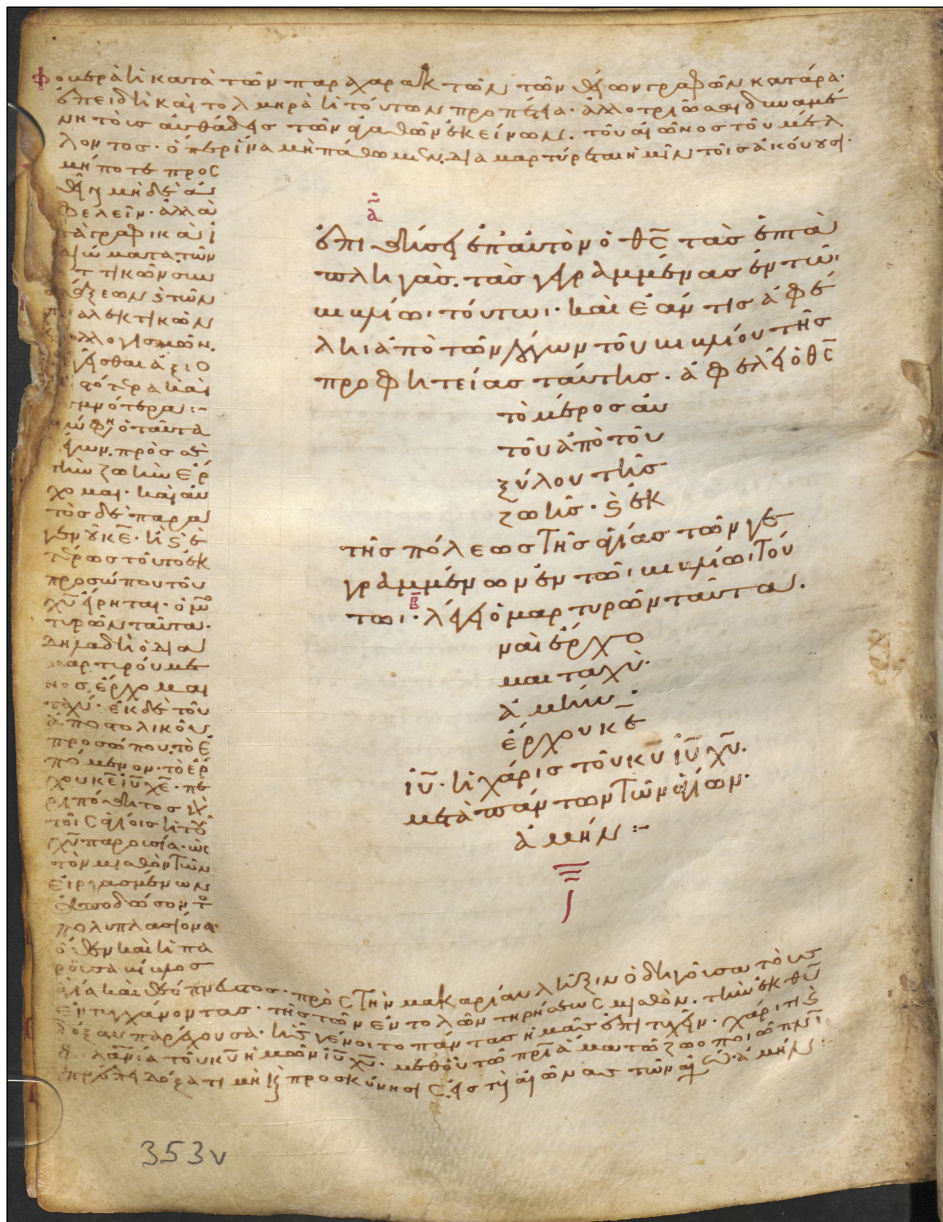 φοβερὰ ἡ κατὰ τῶν παραχαρακτῶν τῶν θείων γραφῶν κατάρα·
ἐπειδὴ καὶ τολμηρὰ ἡ τούτων προπέτεια· ἀλλοτριῶσαι δυναμέ
νη τοὺς αὐθάδεις τῶν ἀγαθῶν ἐκείνων. τοῦ αἰῶνος τοῦ μέλ
λοντος· ὅπερ ἵνα μὴ πάθωμεν, διαμαρτύρεται ἡμῖν τοῖς ἀκούουσι·
μήποτε προς
θεῖναι μηδὲ ἀ
φελεῖν· ἀλλὰ
τὰ γραφικὰ ἰ
διώματα τῶν
ἀττικῶν συν
τάξεων ϗ τῶν
διαλεκτικῶν
συλλογισμῶν.
ἡγεῖσθαι ἀξιο
πιστότερα καὶ
σεμνότερα :-
ὁ ταῦτα
πρὸς σὲ
τὴν ζωὴν ἔρ
χομαι· καὶ αὐ
τὸς δὲ παρα
γενοῦ κε̅· ἢ ϗ ἑ
τέρως τοῦτο ἐκ
προσώπου τοῦ
χυ̅ εἴρηται· ὁ μαρ
τυρῶν ταῦτα·
δηλαδὴ ὁ δια
μαρτυρούμε
νος, ἔρχομαι
ταχύ· ἐκ δὲ τοῦ
ἀποστολικοῦ
προσώπου, τὸ ἑ
πόμενον· τὸ ἔρ
χου κε̅ ιυ̅ χε̅· πε
ριπόθητος
τοῖς ἁγίοις ἡ τοῦ
χυ̅ παρουσία· ὡς
τὸν μισθὸν τῶν
εἰργασμένων
ἀποδώσοντος
πολυπλασίονα·
ὅθεν καὶ ἡ πα
ροῦσα βίβλος
ἁγία καὶ θεόπνευστος· πρὸς τὴν μακαρίαν λῆξιν ὁδηγοῦσα τοὺς
ἐντυγχάνοντας· τῆς τῶν ἐντολῶν τηρήσεως μισθὸν. τὴν ἐκ θυ̅
δόξαν παρέχουσα· ἧς γένοιτο πάντας ἡμᾶς ἐπιτυχεῖν· χάριτι ϗ
φιλανίᾳ τοῦ κυ̅ ἡμῶν ιυ̅ χυ̅· μεθ' οὗ τῶ πρι̅ ἅμα τῶ ζωοποιῶ πνι̅
πρέπει δόξα τιμὴ ϗ προσκύνησις εἰς τοὺς αἰῶνας τῶν αἰώνων· ἀμήν :-
α̅
ἐπιθήσει ἐπ' αὐτὸν ὁ θς̅ τὰς ἑπτὰ
πληγὰς. τὰς γεγραμμένας ἐν τῶ
βιβλίω· τούτω· καὶ ἐάν τις ἀφέ
λη ἀπὸ τῶν λόγων τοῦ βιβλίου τῆς
προφητείας ταύτης· ἀφελεῖ ὁ θς̅
τὸ μέρος αὐ
τοῦ ἀπὸ τοῦ
ξύλου τῆς
ζωῆς· ϗ ἐκ
τῆς πόλεως τῆς ἁγίας τῶν γε
γραμμένων ἐν τῶ· βιβλίω· τού
τω· β̅ λέγει ὁ μαρτυρῶν ταῦτα.
ναὶ ἔρχο
μαι ταχὺ·
ἀμὴν :
ἔρχου κε
ιυ̅· ἡ χάρις τοῦ κυ̅ ιυ̅ χυ̅.
μετὰ πάντων τῶν ἁγίων·
ἀμήν :-
353v